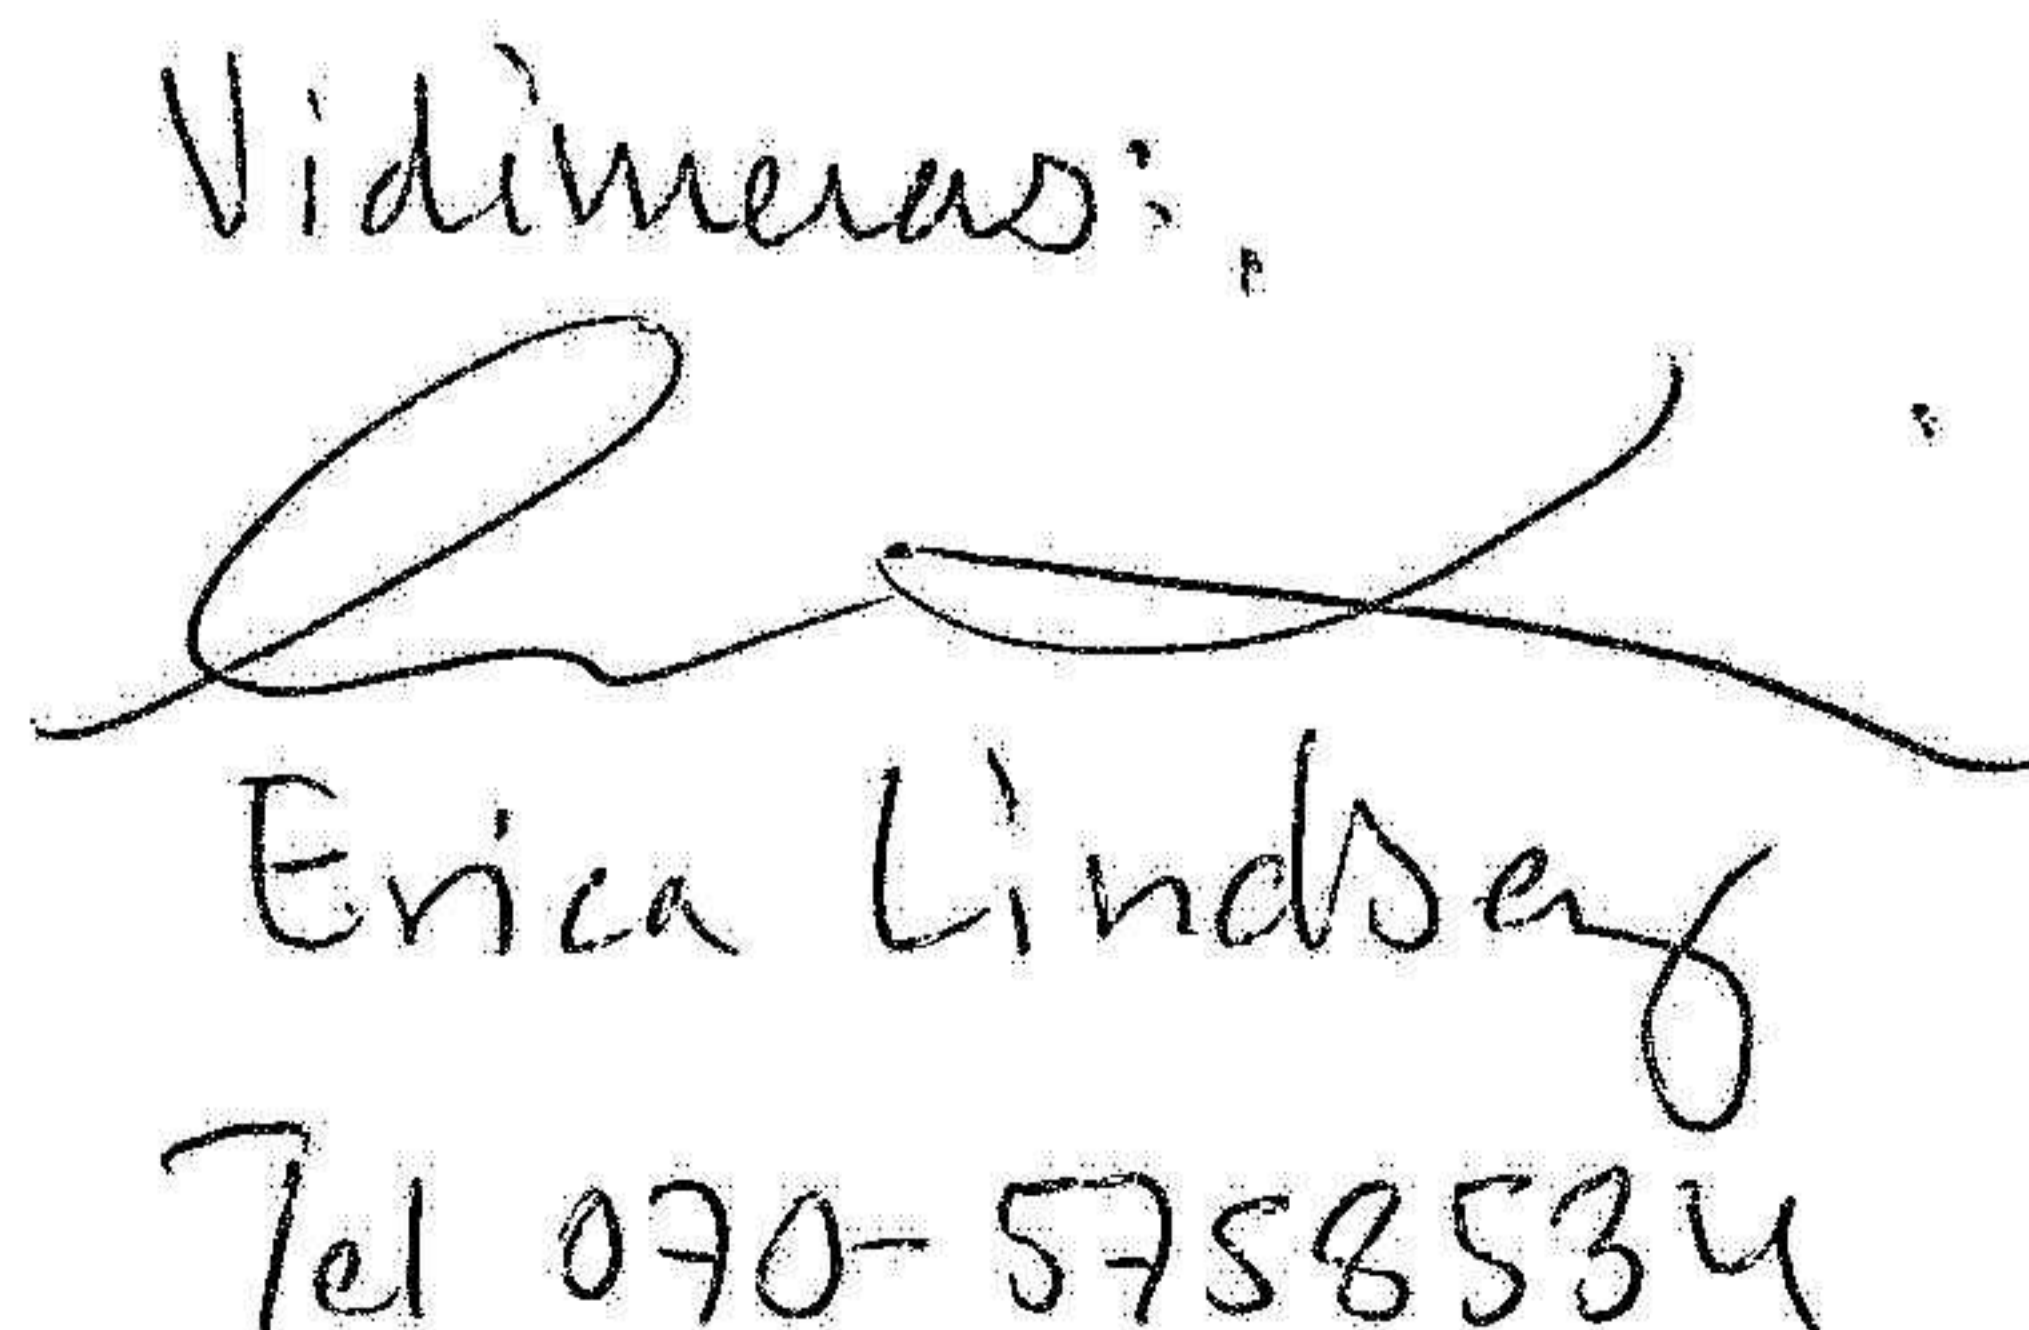 Vidimeras:
Erica Lindberg
Tel 070-5758534